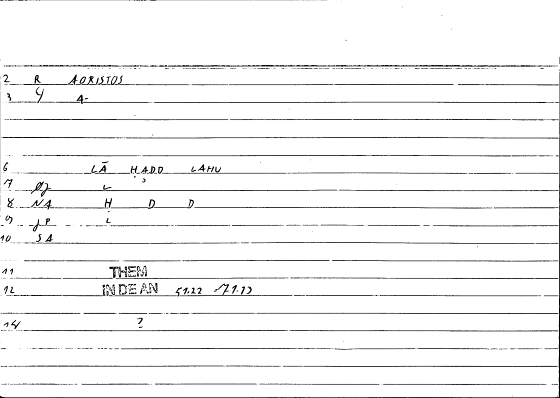 2 R AORISTOS
3 4 A-
6 LĀ ḤADD LAHU
7 L
8 NA Ḥ D D
9 jP L
10 SA
11 THEM
12 IN DE AN 51.22 71.13
14 ?